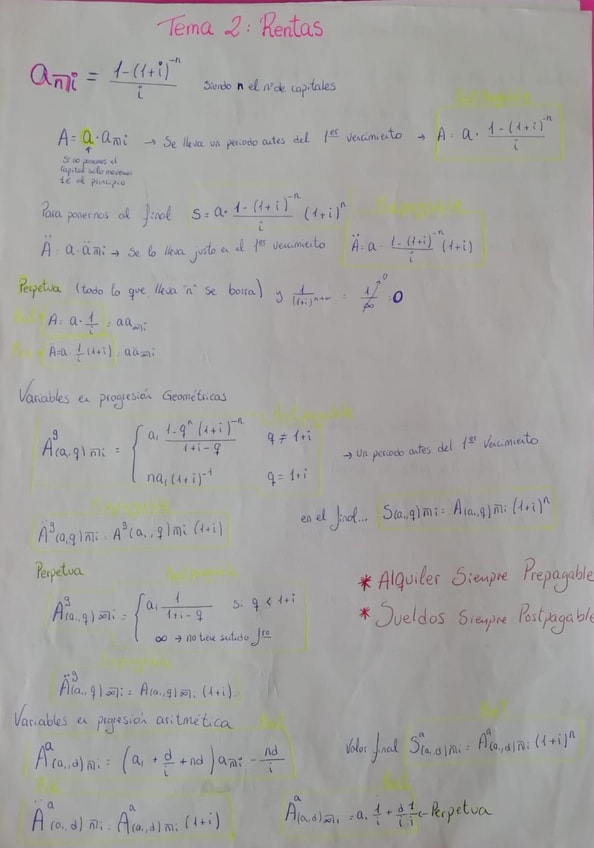 Tema 2: Rentas
a n̅|i = 1-(1+i)^-n / i   Siendo n el nº de capitales
Postpagable
A = a · a n̅|i → Se lleva un periodo antes del 1er vencimiento → A = a · 1-(1+i)^-n / i
Si no ponemos el
capital solo movemos
1€ al principio
Prepagable
Para ponernos al final S = a · 1-(1+i)^-n / i (1+i)^n
Ä = a · ä n̅|i → Se lo lleva justo en el 1er vencimiento Ä = a · 1-(1+i)^-n / i (1+i)
Perpetua (todo lo que lleva "n" se borra) y 1 / (1+i)^n→∞ = 1/∞ = 0
A = a · 1/i = a a ∞̅|i
A = a · 1/i (1+i) = a ä ∞̅|i
Variables en progresión Geométricas
Postpagable
A^g (a, q) n̅|i = { a₁ 1-q^n (1+i)^-n / 1+i-q   q ≠ 1+i
n a₁ (1+i)^-1   q = 1+i
→ Un periodo antes del 1er Vencimiento
Prepagable
Ä^g (a, q) n̅|i = A^g (a, q) n̅|i (1+i)
en el final... S(a, q) n̅|i = A(a, q) n̅|i (1+i)^n
Perpetua
Postpagable
A^g (a, q) ∞̅|i = { a₁ 1 / 1+i-q   si q < 1+i
∞ → no tiene sentido fro
* Alquiler Siempre Prepagable
* Sueldos Siempre Postpagable
Prepagable
Ä^g (a, q) ∞̅|i = A(a, q) ∞̅|i (1+i)
Variables en progresión aritmética
Post
A^a (a, d) n̅|i = (a₁ + d/i + nd) a n̅|i - nd/i
Valor final S^a (a, d) n̅|i = A^a (a, d) n̅|i (1+i)^n
Ä^a (a, d) n̅|i = A^a (a, d) n̅|i (1+i)
A^a (a, d) ∞̅|i = a₁ 1/i + d/i 1/i ← Perpetua